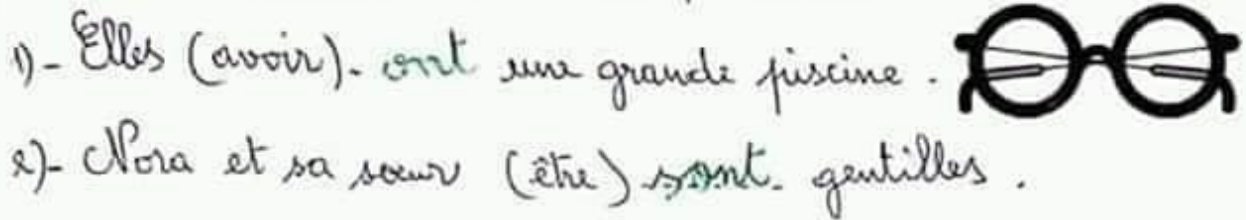 1)- Elles (avoir). ont une grande piscine.
2)- Nora et sa soeur (être) sont. gentilles.